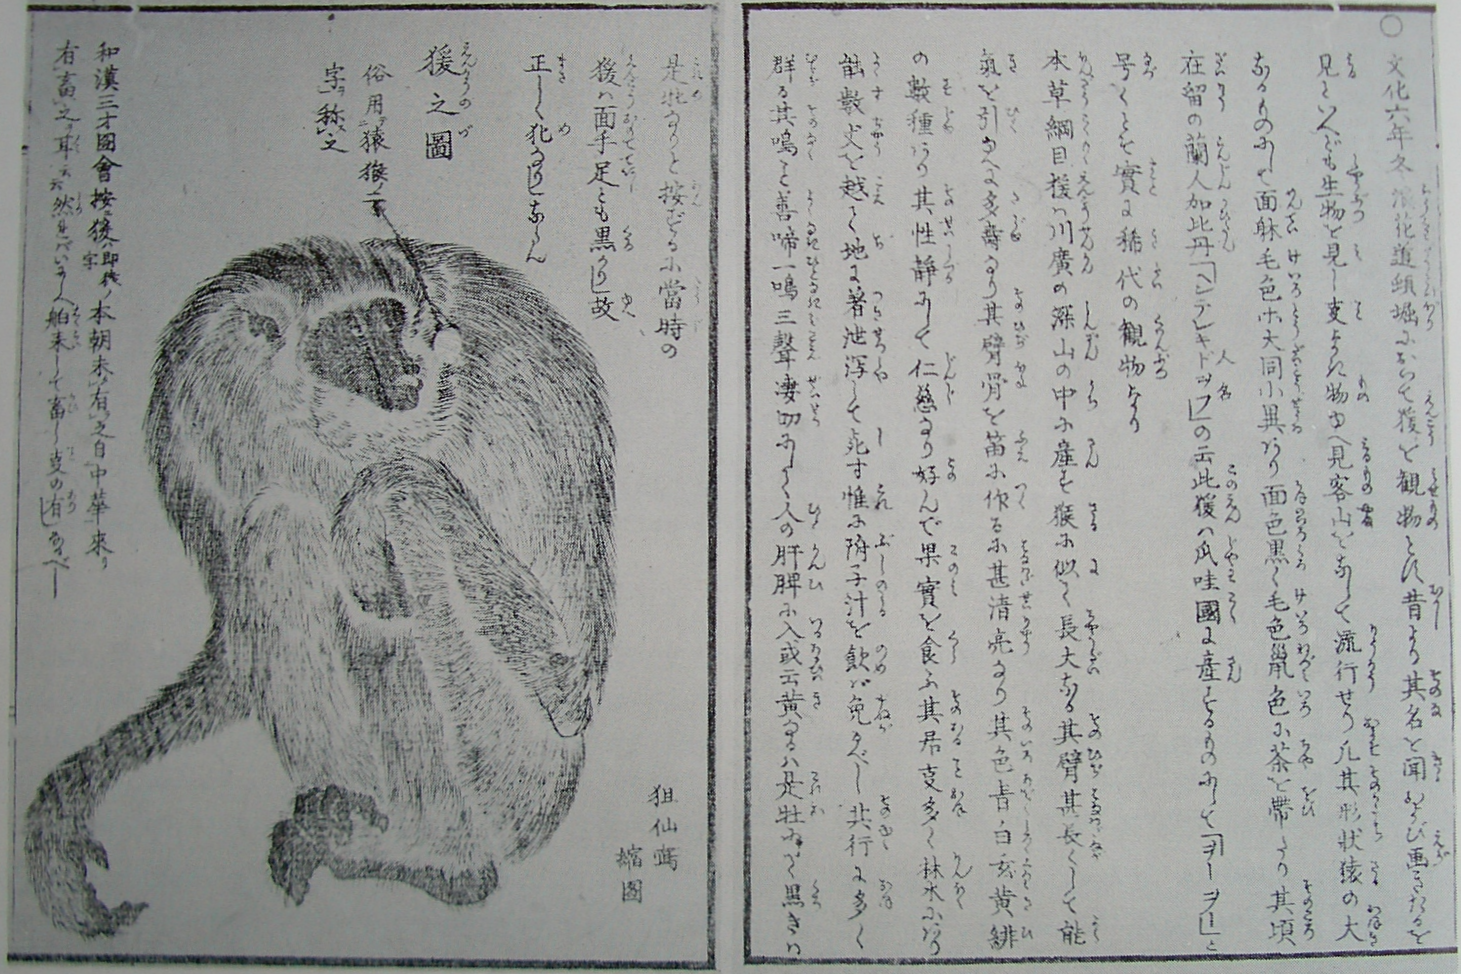 ○文化六年冬浪花道頓堀におゐて猨を観物とす昔より其名を聞および画きたるを
見るといへども生物を見し事なき物ゆへ見客山をなして流行せり凡其形状猿の大
なるものにして面躰毛色ホ大同小異あり面色黒く毛色鼠色に茶を帯たり其頃
在留の蘭人加比丹「ヘンデレキドウフ」人名の云此猨ハ爪哇國に産するものにして「ヲーヲー」と
号くとぞ實に稀代の観物なり
本草綱目猨ハ川廣の深山の中に産す猴に似て長大なる其臂甚長くして能
氣を引ゆへに多壽なり其臂骨を笛に作るに甚清亮なり其色青白玄黄緋
の數種あり其性静にして仁慈なり好んで果實を食ふ其居事多く林木にあり
能數丈を越て地に著泄瀉して死す惟附子汁を飲バ免るべし其行に多く
群る其鳴こと善啼一鳴三聲凄切にして人の肝脾に入或云黄なるハ是牡にして黒きハ
是牝なりと按ずるに當時の
猨ハ面手足とも黒かりし故
正しく牝なりしならん
猨之圖
俗用猿猴ノ二
字ヲ称之
和漢三才圖會按ニ猨ハ即猿ノ字本朝未有之自中華來リ
有畜之耳云云然ればいにしへ舶来して畜し事の有しなるべし
狙仙寫
縮圖